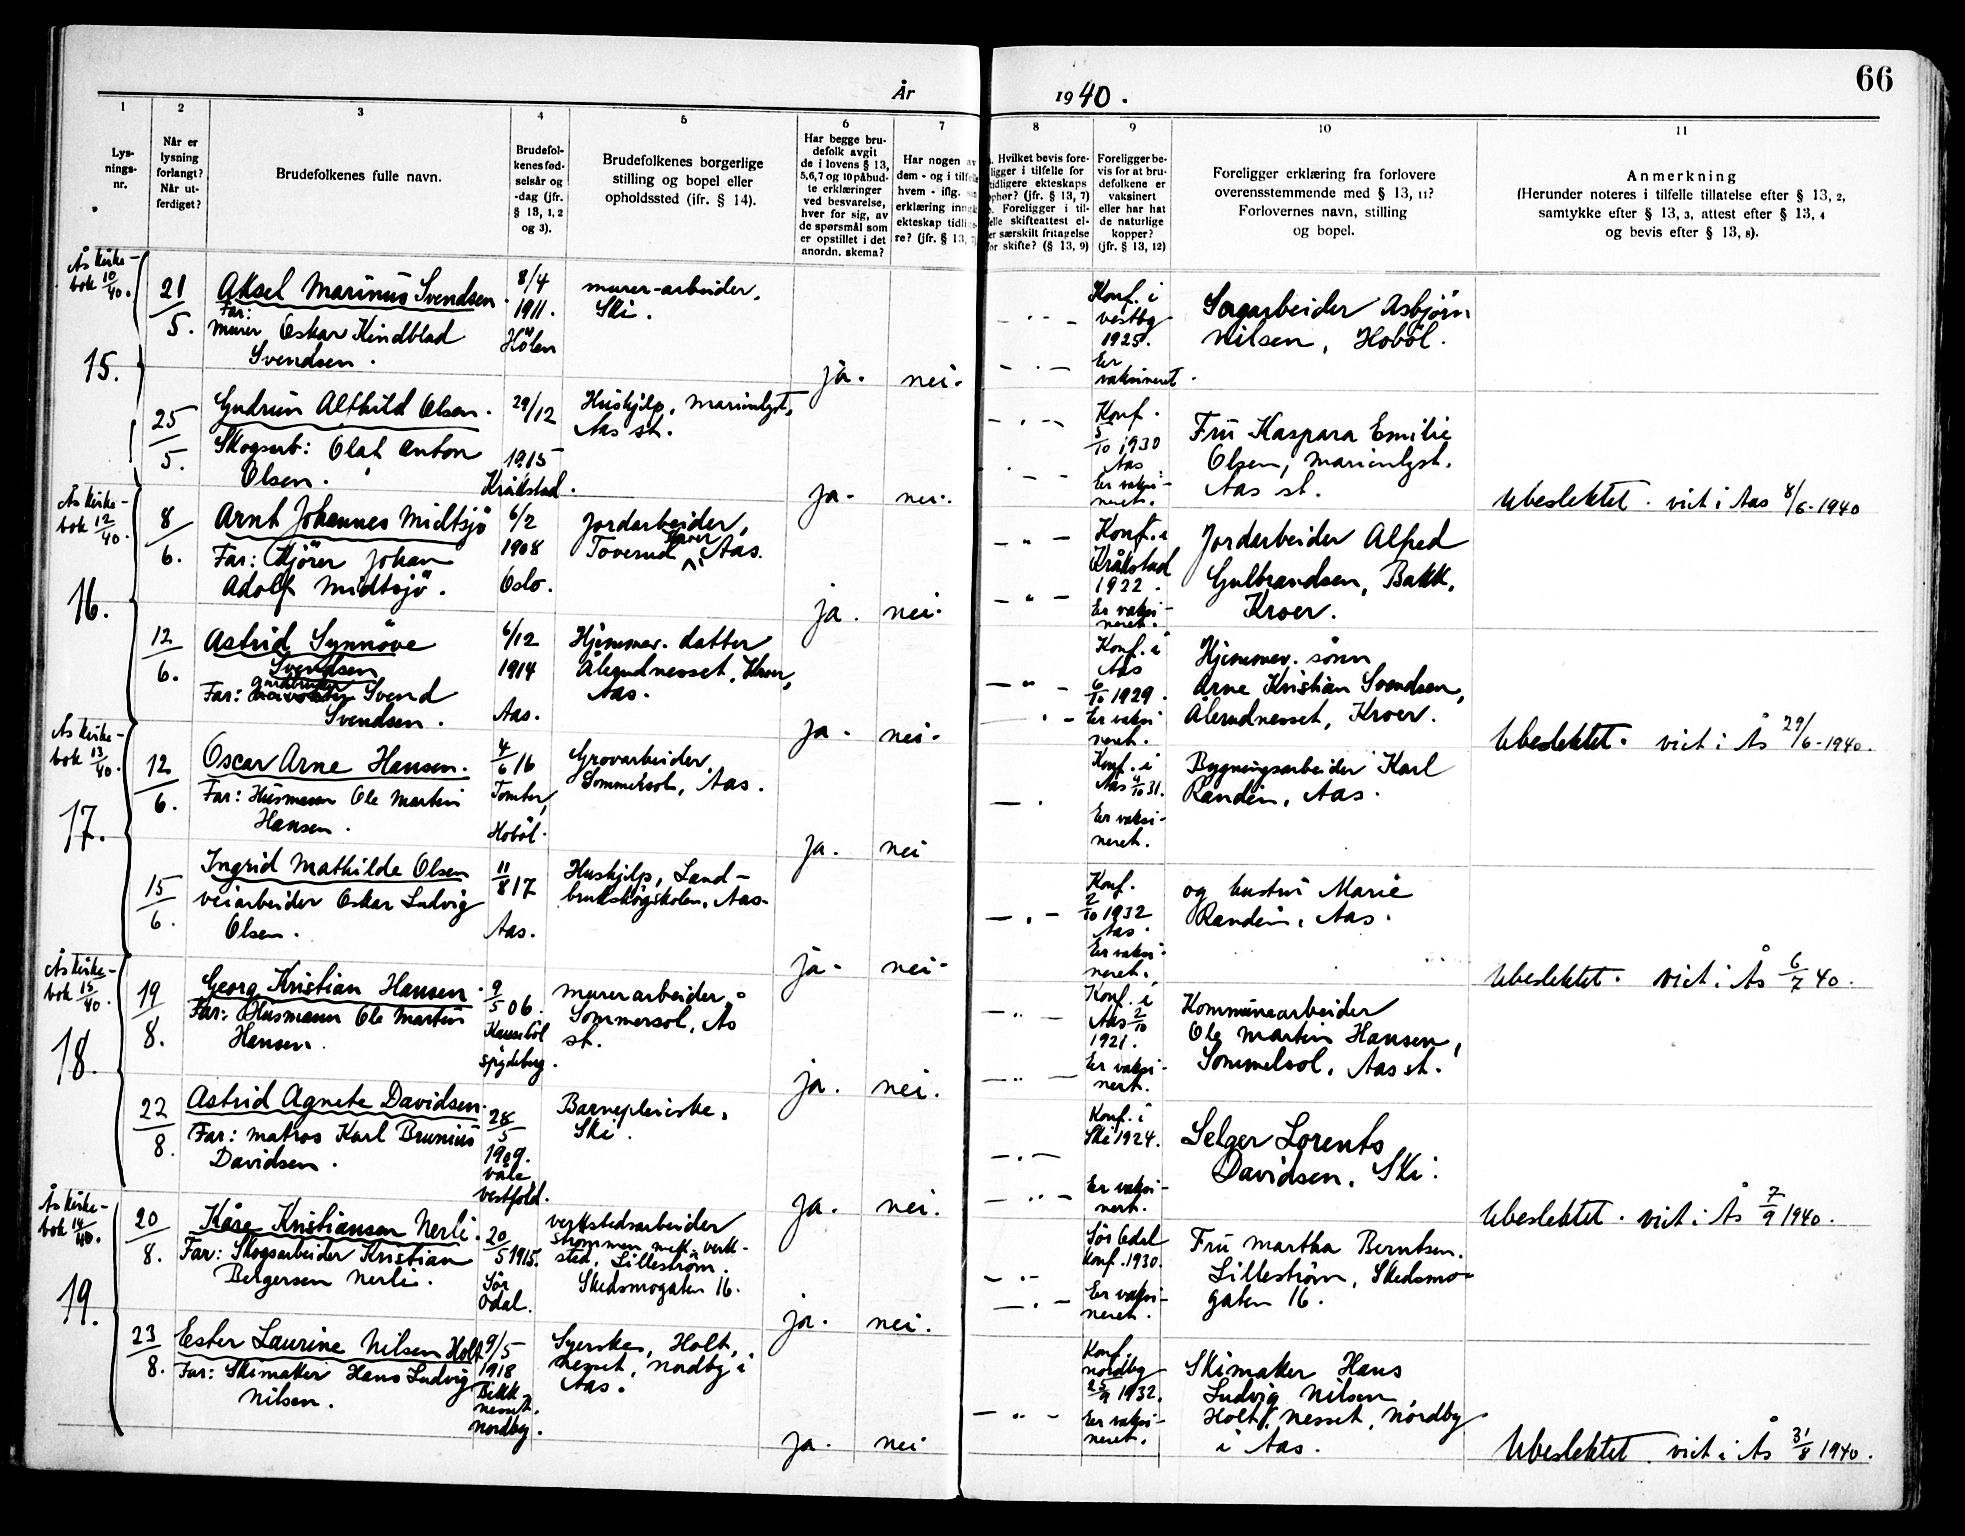 66
År 1940.
1 2 3 4 5 6 7 8 9 10 11
Lys-
nings-
nr.
Når er
lysning
forlangt?
Når ut-
ferdiget?
Brudefolkenes fulle navn.
Brudefol-
kenes fød-
selsår og
-dag (jfr.
§ 13, 1, 2
og 3).
Brudefolkenes borgerlige
stilling og bopel eller
opholdssted (jfr. § 14).
Har begge bru-
defolk avgit
de i lovens § 13,
5,6,7 og 10 påbud-
te erklæringer
ved besvarelse,
hver for sig, av
de spørsmål som
er opstillet i det
anordn. skema?
Har nogen av
dem - og i tilfelle
hvem - iflg. sin
erklæring inngå
ekteskap tidlige-
re? (jfr. § 13, 7)
Hvilket bevis fore-
ligger i tilfelle for
tidligere ekteskaps
ophør? (jfr. § 13, 7)
Foreligger i til-
felle skifteattest el-
er særskilt fritagelse
for skifte? (§ 13, 9)
Foreligger be-
vis for at bru-
defolkene er
vaksinert
eller har hat
de naturlige
kopper?
(jfr. § 13, 12)
Foreligger erklæring fra forlovere
overensstemmende med § 13, 11?
Forlovernes navn, stilling
og bopel.
Anmerkning
(Herunder noteres i tilfelle tillatelse efter § 13, 2,
samtykke efter § 13, 3, attest efter § 13, 4
og bevis efter § 13, 8).
Ås kirke-
bok 10/40.
15.
21/5.
Aksel Marinus Svendsen
Far:
murer Oskar Kindblad
Svendsen.
8/4
1911.
Hölen
murer-arbeider,
Ski.
ja. nei.
Konf. i
vestby
1925.
Er
vaksineret.
Sagarbeider Asbjörn
Nilsen, Hoböl.
25/5.
Gudrun Alfhild Olsen.
Skogsarb: Olaf Anton
Olsen.
29/12
1915
Kråkstad.
Hushjelp, Marienlyst,
Aas st.
ja. nei.
Konf.
5/10 1930
Aas
Er vaksi-
neret.
Fru Kaspara Emilie
Olsen, Marienlyst.
Aas st.
Ubeslektet. viet i Aas 8/6-1940
Ås kirke-
bok 12/40.
16.
8/6.
Arnt Johannes Midtsjö
Far: Kjörer Johan
Adolf Midtsjö.
6/2
1908
Oslo.
Jordarbeider,
Toverud Aas.
ja. nei.
Konf. i
Kråkstad
1922.
Er vaksi-
neret.
Jordarbeider Alfred
Gulbrandsen, Bakk,
Kroer.
12/6.
Astrid Synnöve
Svendsen
Far: Svend
Svendsen.
6/12
1914
Aas.
Hjemmev. datter
Ålerudnesset, Kroer,
Aas.
ja. nei.
Konf. i
Aas
6/10 1929.
Er vaksi
neret.
Hjemmev. sönn
Arne Kristian Svendsen,
Ålerudnesset, Kroer.
Ubeslektet. viet i Ås 29/6-1940.
Ås kirke-
bok 13/40.
17.
12/6.
Oscar Arne Hansen.
Far: Husmann Ole Martin
Hansen.
4/6 16
Tomter,
Hoböl.
Grovarbeider,
Sommersol, Aas.
ja. nei
Konf. i
Aas 4/10 31.
Er vaksi-
neret.
Bygningsarbeider Karl
Randin, Aas.
15/6.
Ingrid Mathilde Olsen
veiarbeider Oskar Ludvig
Olsen.
11/8 17
Aas.
Hushjelp, Land-
brukshögskolen, Aas.
ja. nei.
Konf.
2/10 1932
Aas.
Er vaksi-
neret.
og hustru Marie
Randin, Aas.
Ubeslektet. viet i Ås 6/7 40.
Ås kirke-
bok 15/40.
18.
19/8.
Georg Kristian Hansen.
Far: Husmann Ole Martin
Hansen.
9/5 06.
Spydeberg.
murerarbeider,
Sommersol, Ås
st.
ja. nei.
Konf. i
Aas 2/10
1921.
Er vaksi-
nert.
Kommunearbeider
Ole Martin Hansen,
Sommersol, Aas st.
22/8.
Astrid Agnete Davidsen.
Far: matros Karl Brunius
Davidsen.
28/5
1909.
våle
vestfold.
Barnepleierske,
Ski.
ja. nei.
Konf. i
Ski 1924.
Er vaksi-
nert.
Selger Lorents
Davidsen, Ski.
Ubeslektet. viet i Ås 7/9 1940.
Ås kirke-
bok 14/40.
19.
20/8.
Kåre Kristiansen Nerli.
Far: Skogsarbeider Kristian
Bergersen Nerli.
20/5 1915.
Sör
Odal.
verkstedsarbeider
Strömmen mek. verk-
sted, Lilleström.
Skedsmogaten 16.
ja. nei.
Sör Odal
konf. 1930.
Er vaksi-
neret.
Fru Martha Berntsen.
Lilleström, Skedsmo-
gaten 16.
23/8.
Ester Laurine Nilsen Holt
Far: Skimaker Hans Ludvig
Nilsen.
9/5
1918
Bekk
nesset.
Nordby.
Syerske, Holt,
nesset, Nordby i
Aas.
ja. nei
Konf.
Nordby
25/9 1932.
Er vaksi-
neret.
Skimaker Hans
Ludvig Nilsen
Holt, Nesset, Nordby
i Aas.
Ubeslektet. viet i Ås 31/8 1940.